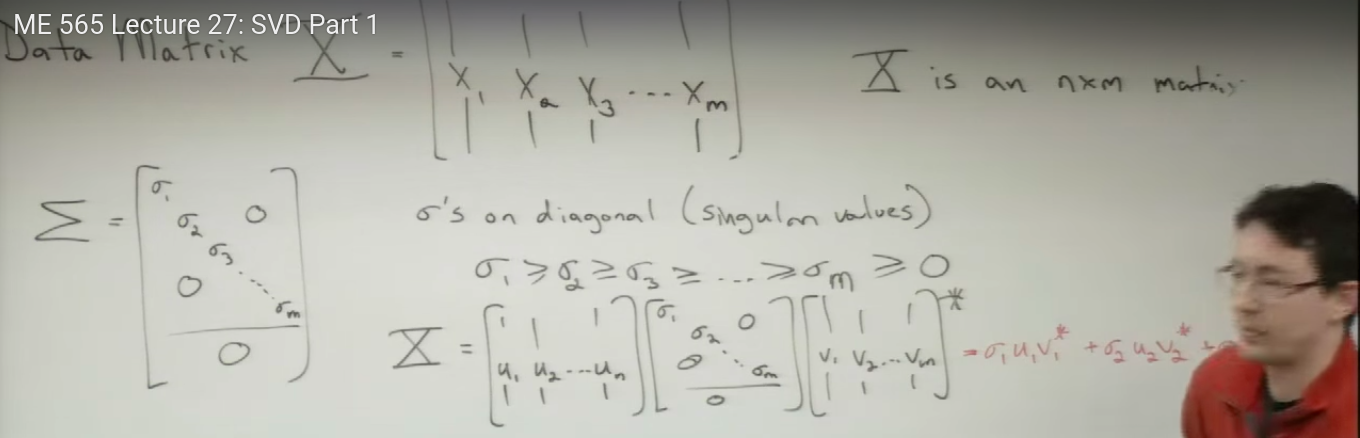 ME 565 Lecture 27: SVD Part 1
Data Matrix X = [ x₁ x₂ x₃ ... xₘ ] X is an n×m matrix
Σ = [ σ₁ σ₂ σ₃ ... σₘ 0 0 0 ]
σ's on diagonal (singular values)
σ₁ ≥ σ₂ ≥ σ₃ ≥ ... ≥ σₘ ≥ 0
X = [ u₁ u₂ ... uₙ ] [ σ₁ σ₂ ... σₘ 0 0 0 ] [ v₁ v₂ ... vₘ ]* = σ₁u₁v₁* + σ₂u₂v₂* +